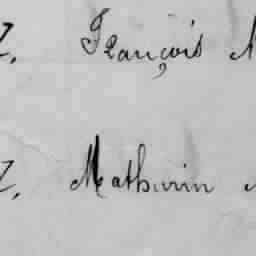 François
Mathurin